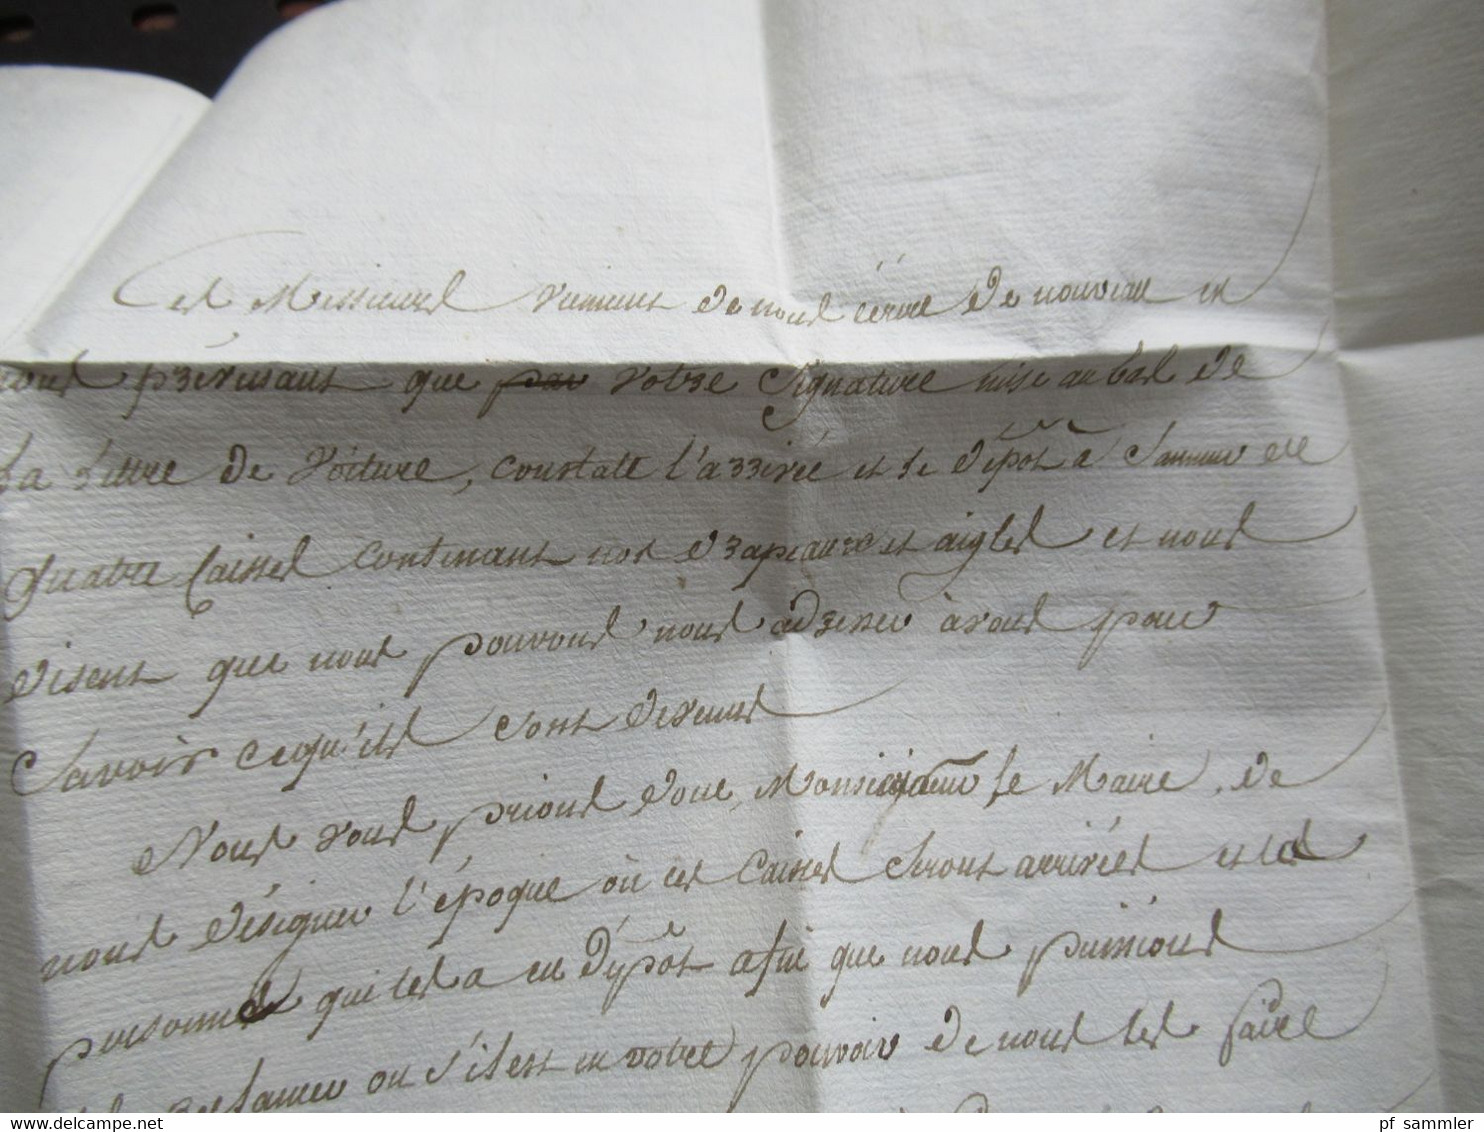 Ces Messieurs viennent de nous écrire de nouveau en
nous prévenant que par votre Signature mise au bas de
la lettre de Voiture, constate l'arrivée et le dépôt à Saumur de
quatre Caisses contenant nos drapeaux et aigles et nous
disent que nous pouvons nous adresser à vous pour
Savoir cequ'ils sont devenus
Nous vous prions donc, Monsieur le Maire, de
nous désigner l'époque où ces Caisses seront arrivées et la
personne qui les a en dépôt afin que nous puissions
les réclamer ou s'il est en votre pouvoir de nous les faire
delcampe.net
pf_sammler